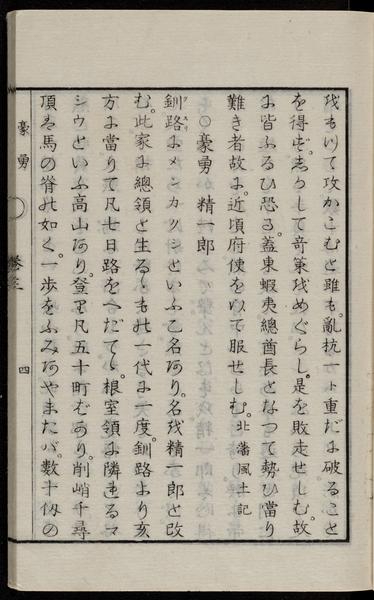 戎もいて攻かこむと雖も。亂杭一ト重だに破ること
を得ず。あらかして竒策戎めぐらし。是を敗走せしむ。故
に皆ふるひ恐る。蓋東蝦夷總酋長となつて勢ひ當り
難き者故に。近頃府使を以て服せしむ。北蕃風土記
○豪勇 精一郎
釧路にメンカクシといふ乙名あり。名戎精一郎と改
む。此家に總領と生るゝもの一代に一度。釧路より亥
方に當りて凡七日路をへだてゝ。根室領に隣れるマ
シウといふ高山あり。登り凡五十町ばあり。削峭千尋
頂は馬の脊の如く。一歩をふみあやまたバ。數十仭の
豪勇
卷三
四